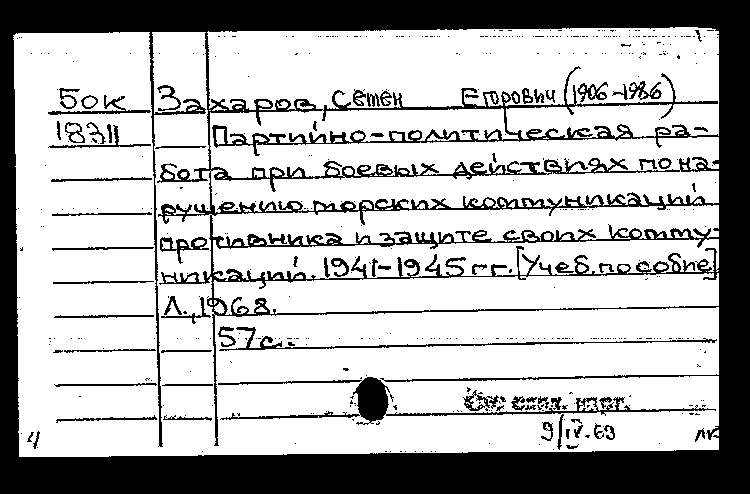 Бок Захаров, Семен Егорович (1906-1986)
18311 Партийно-политическая ра-
бота при боевых действиях по на-
рушению морских коммуникаций
противника и защите своих комму-
никаций. 1941-1945 гг. [Учеб. пособие]
Л., 1968.
57 с.
9/IV.69
4